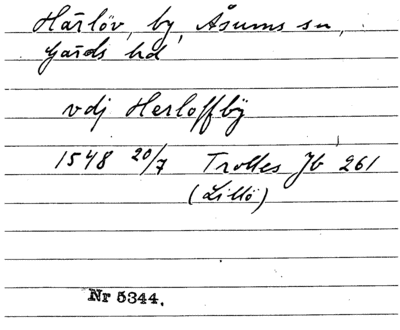 Härlöv, by, Åsums sn,
Gärds hd
vdj Herloffbÿ
1548 20/7 Trolles Jb 261
(Lillö)
Nr 5344.